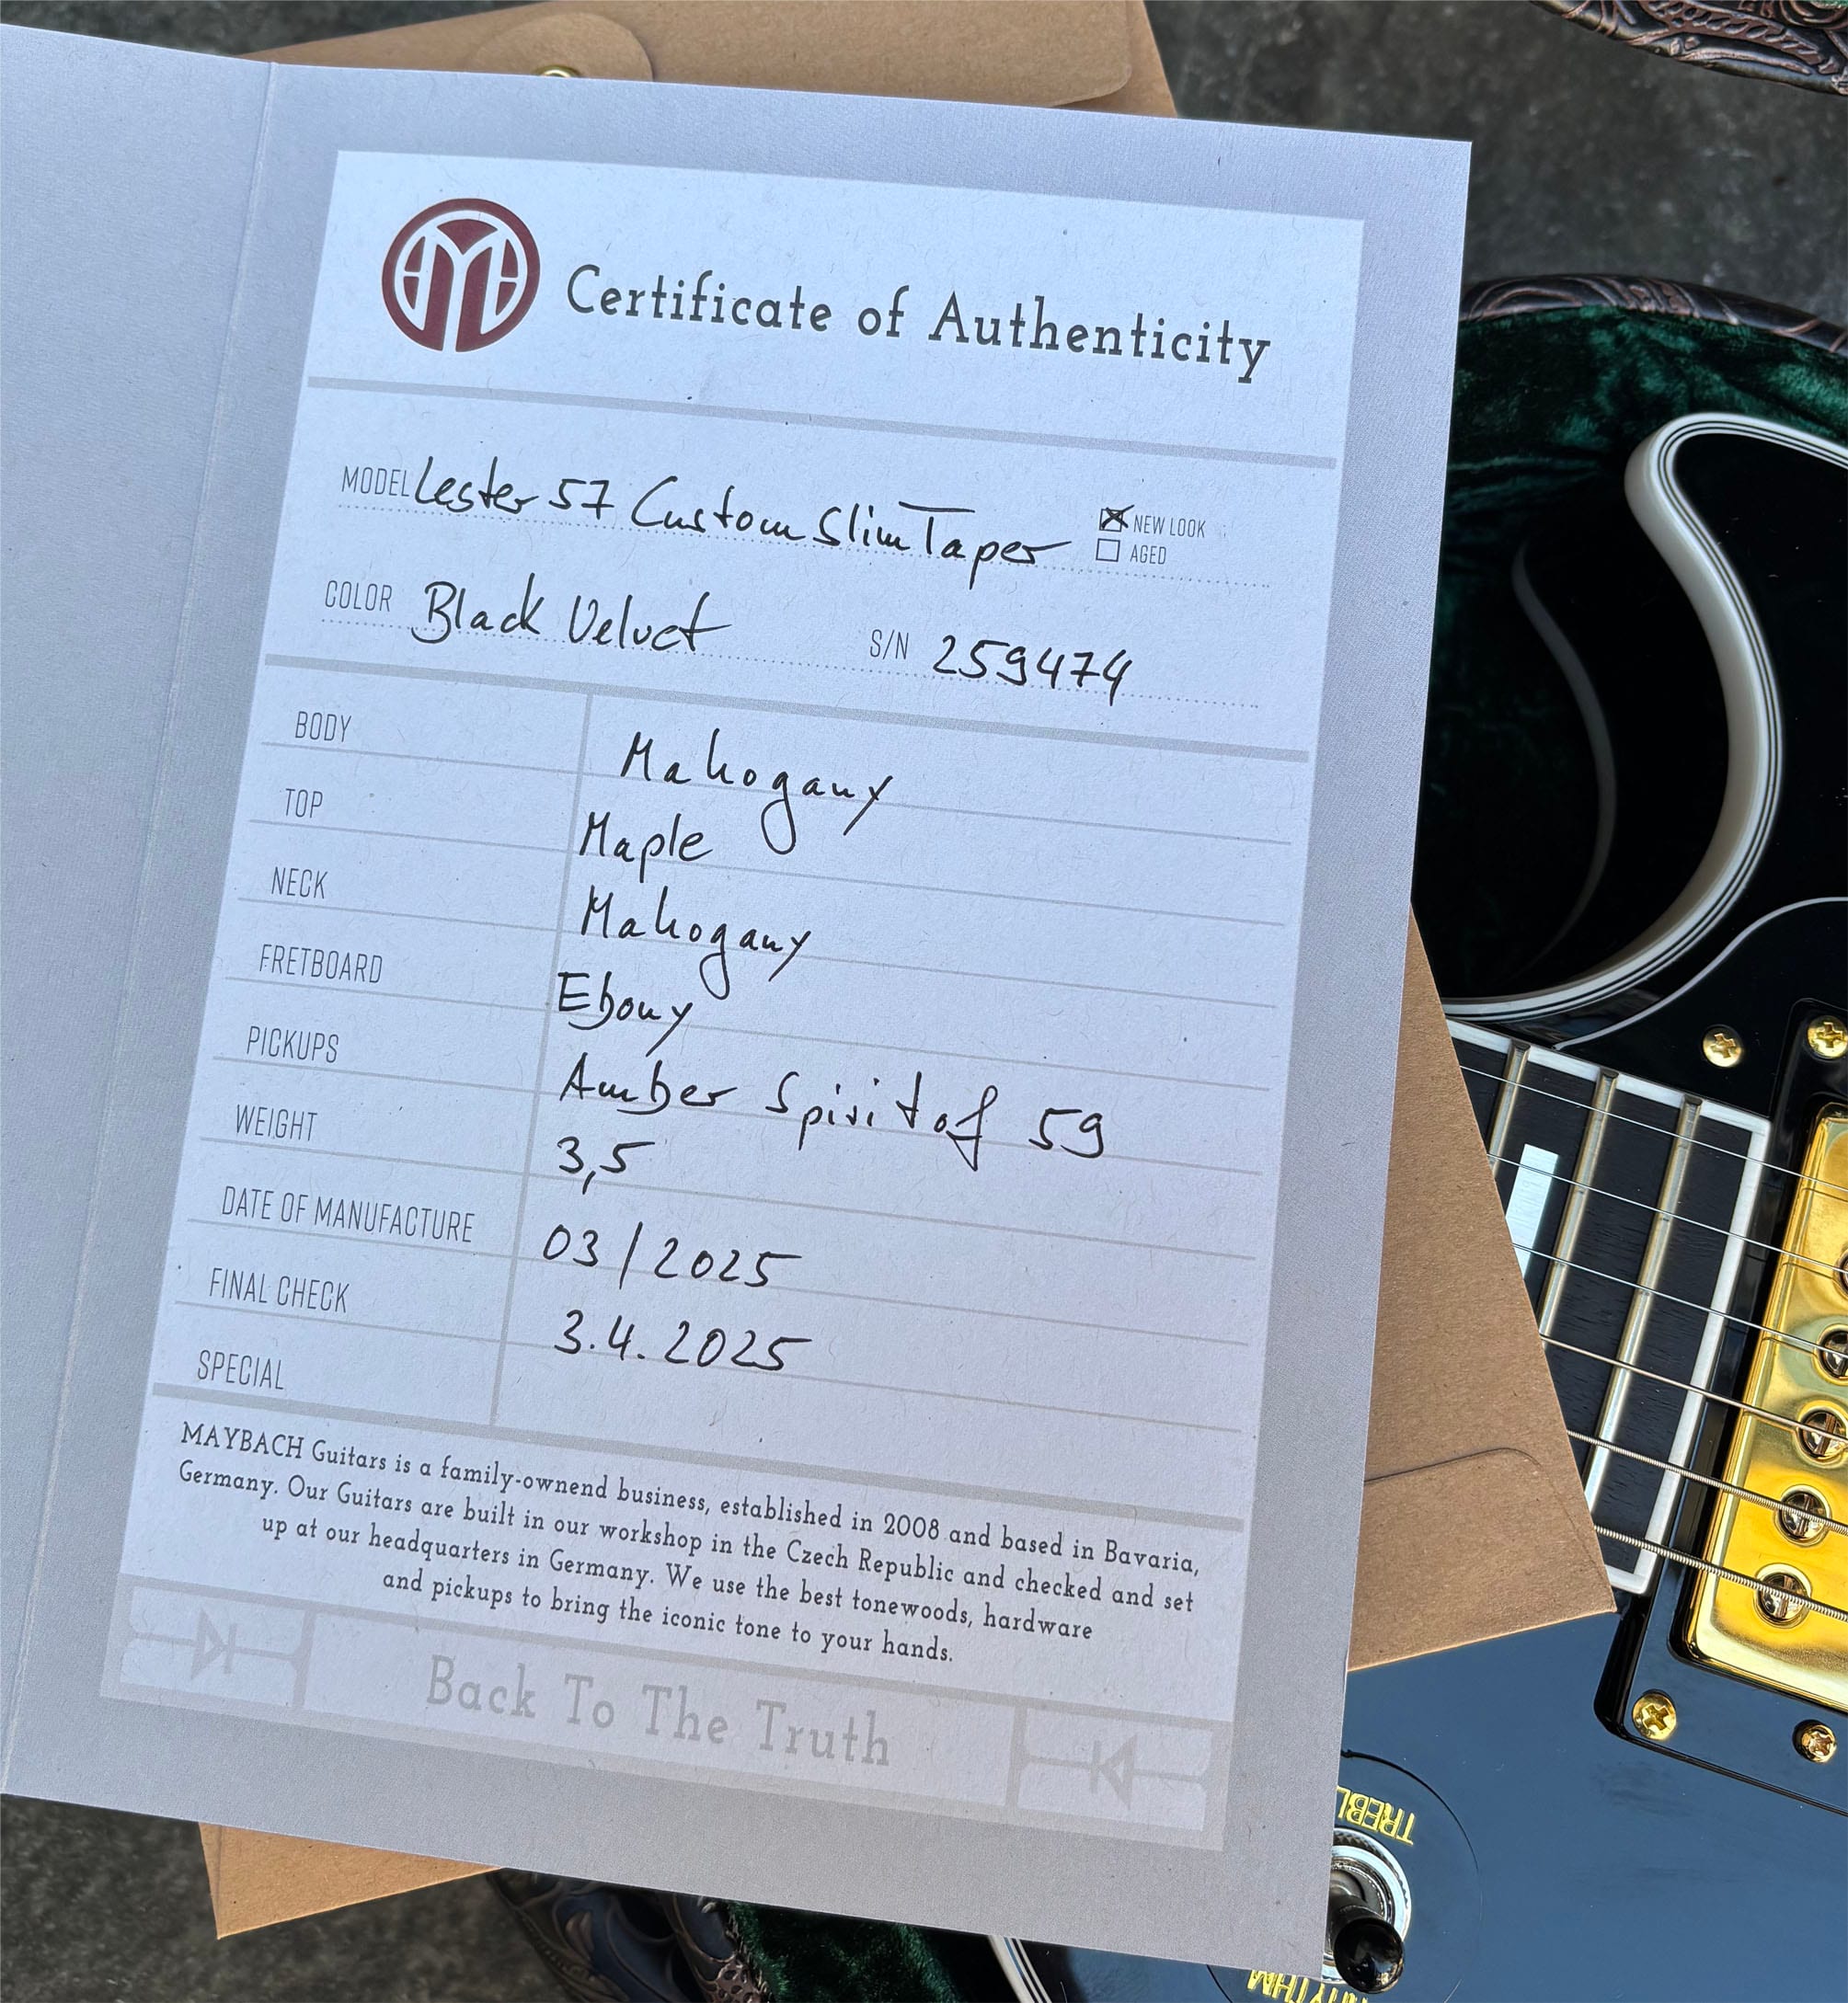 Certificate of Authenticity
MODEL Lester 57 Custom Slim Taper
☒ NEW LOOK
☐ AGED
COLOR Black Velvet S/N 259474
BODY Mahogany
TOP Maple
NECK Mahogany
FRETBOARD Ebony
PICKUPS Amber Spirit of 59
WEIGHT 3,5
DATE OF MANUFACTURE 03/2025
FINAL CHECK 3.4.2025
SPECIAL
MAYBACH Guitars is a family-ownend business, established in 2008 and based in Bavaria,
Germany. Our Guitars are built in our workshop in the Czech Republic and checked and set
up at our headquarters in Germany. We use the best tonewoods, hardware
and pickups to bring the iconic tone to your hands.
Back To The Truth